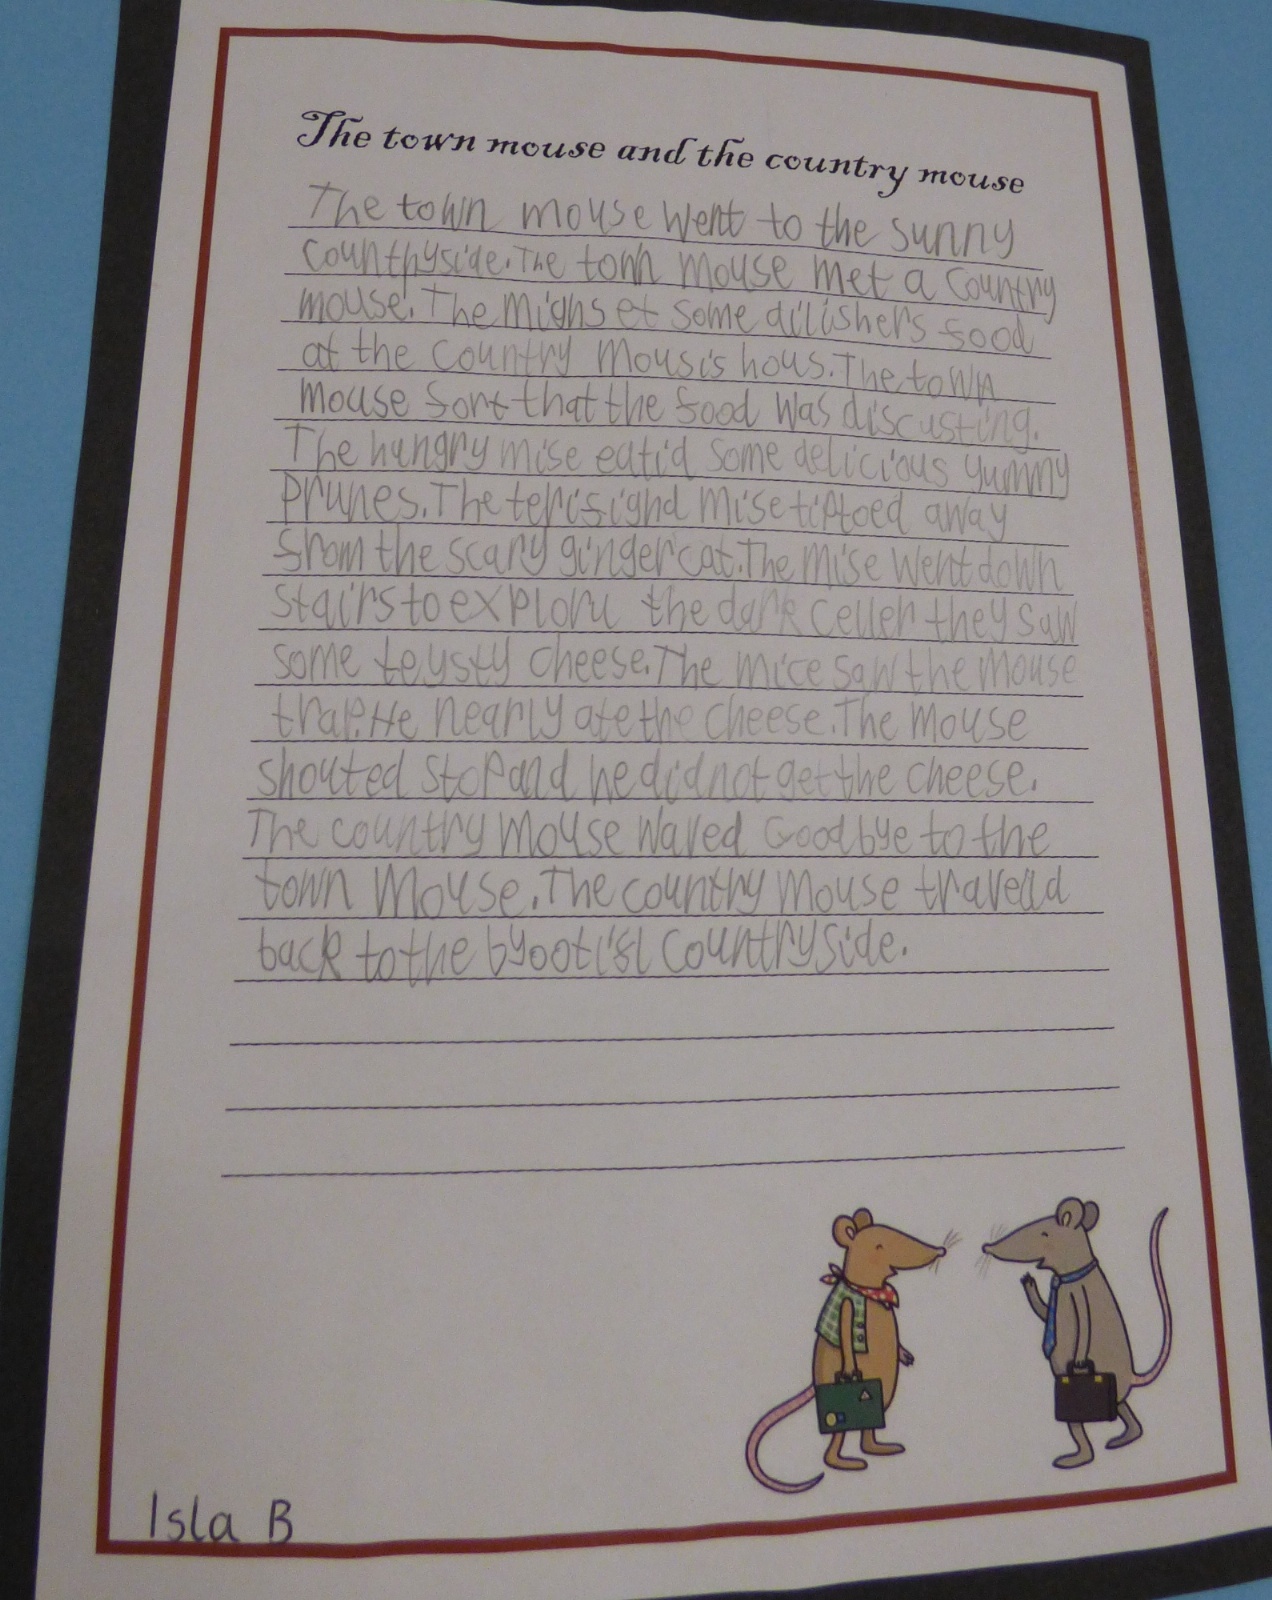 The town mouse and the country mouse
The town mouse went to the sunny
countryside. The town mouse met a country
mouse. The mighs et some dilishers food
at the country mousis hous. The town
mouse fort that the food was discusting.
The hungry mise eatid some delicious yummy
prunes. The terisighd mise tiptoed away
from the scary ginger cat. The mise went down
stairs to exploru the dark celler they saw
some teysty cheese. The mice saw the mouse
trap. He nearly ate the cheese. The mouse
shouted stop and he did not get the cheese.
The country mouse waved Goodbye to the
town mouse. The country mouse travelld
back to the byootifl countryside.
Isla B